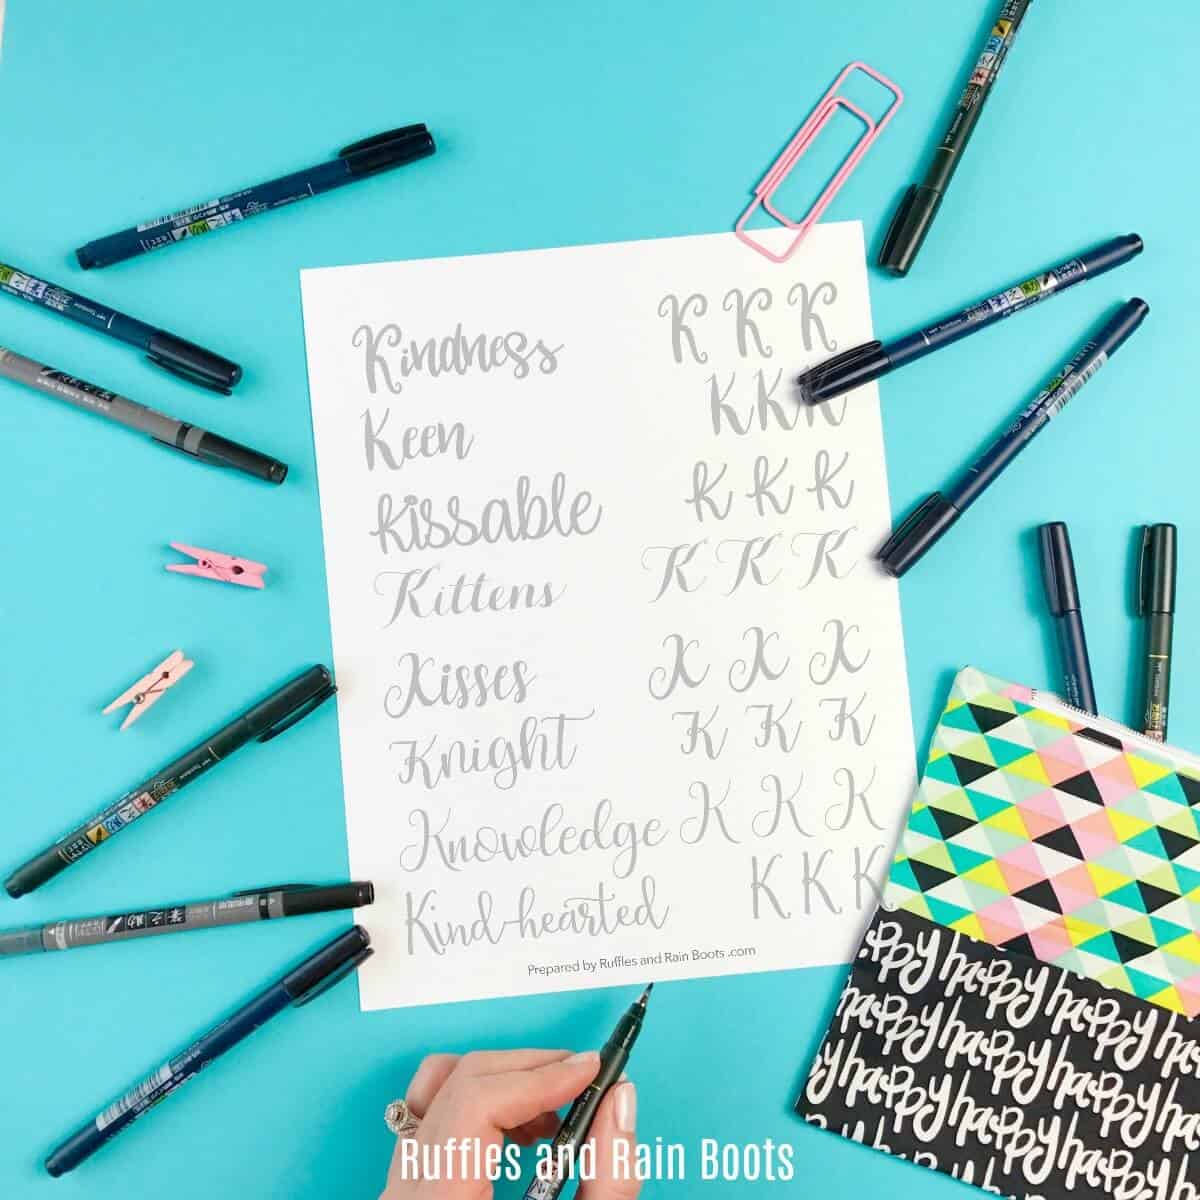 Kindness K K K
Keen K K K
kissable K K K
Kittens K K K
Kisses K K K
Knight K K K
Knowledge K K K
Kind-hearted K K K
Prepared by Ruffles and Rain Boots .com
happy happy happy
happy happy happy
happy happy happy
happy happy
Ruffles and Rain Boots